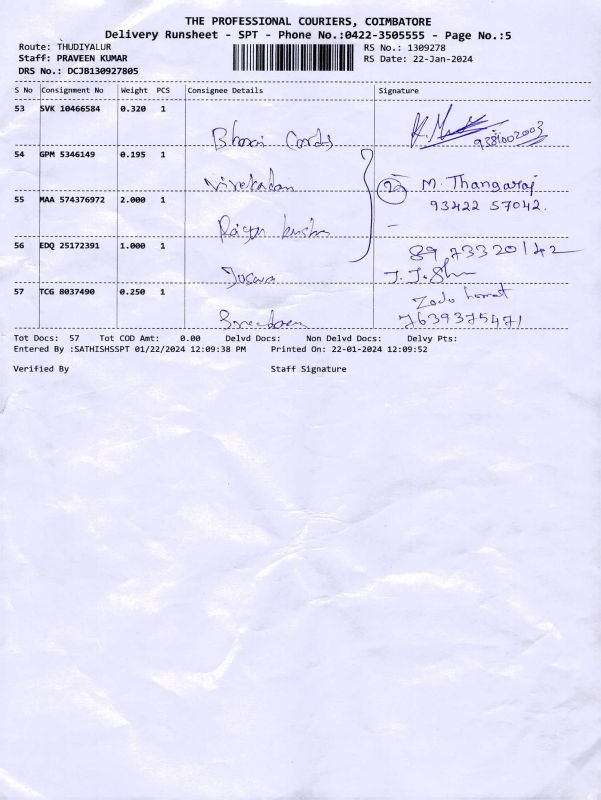 THE PROFESSIONAL COURIERS, COIMBATORE
Delivery Runsheet - SPT - Phone No.:0422-3505555 - Page No.:5
Route: THUDIYALUR RS No.: 1309278
Staff: PRAVEEN KUMAR RS Date: 22-Jan-2024
DRS No.: DCJB130927805
S No Consignment No Weight PCS Consignee Details Signature
53 SVK 10466584 0.320 1
9381002003
54 GPM 5346149 0.195 1
M. Thangaraj
55 MAA 574376972 2.000 1
93422 57042.
56 EDQ 25172391 1.000 1
89 73320142
57 TCG 8037490 0.250 1
7639375471
Tot Docs: 57 Tot COD Amt: 0.00 Delvd Docs: Non Delvd Docs: Delvy Pts:
Entered By :SATHISHSSPT 01/22/2024 12:09:38 PM Printed On: 22-01-2024 12:09:52
Verified By Staff Signature